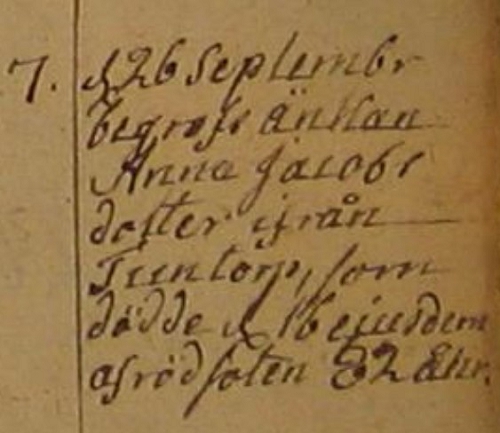 7. d 26 Septembr
begrofs änkan
Anna Jacobs
dotter ifrån
Tuntorp, som
dödde d 16 ejusdem
af rödsoten 82 åhr.